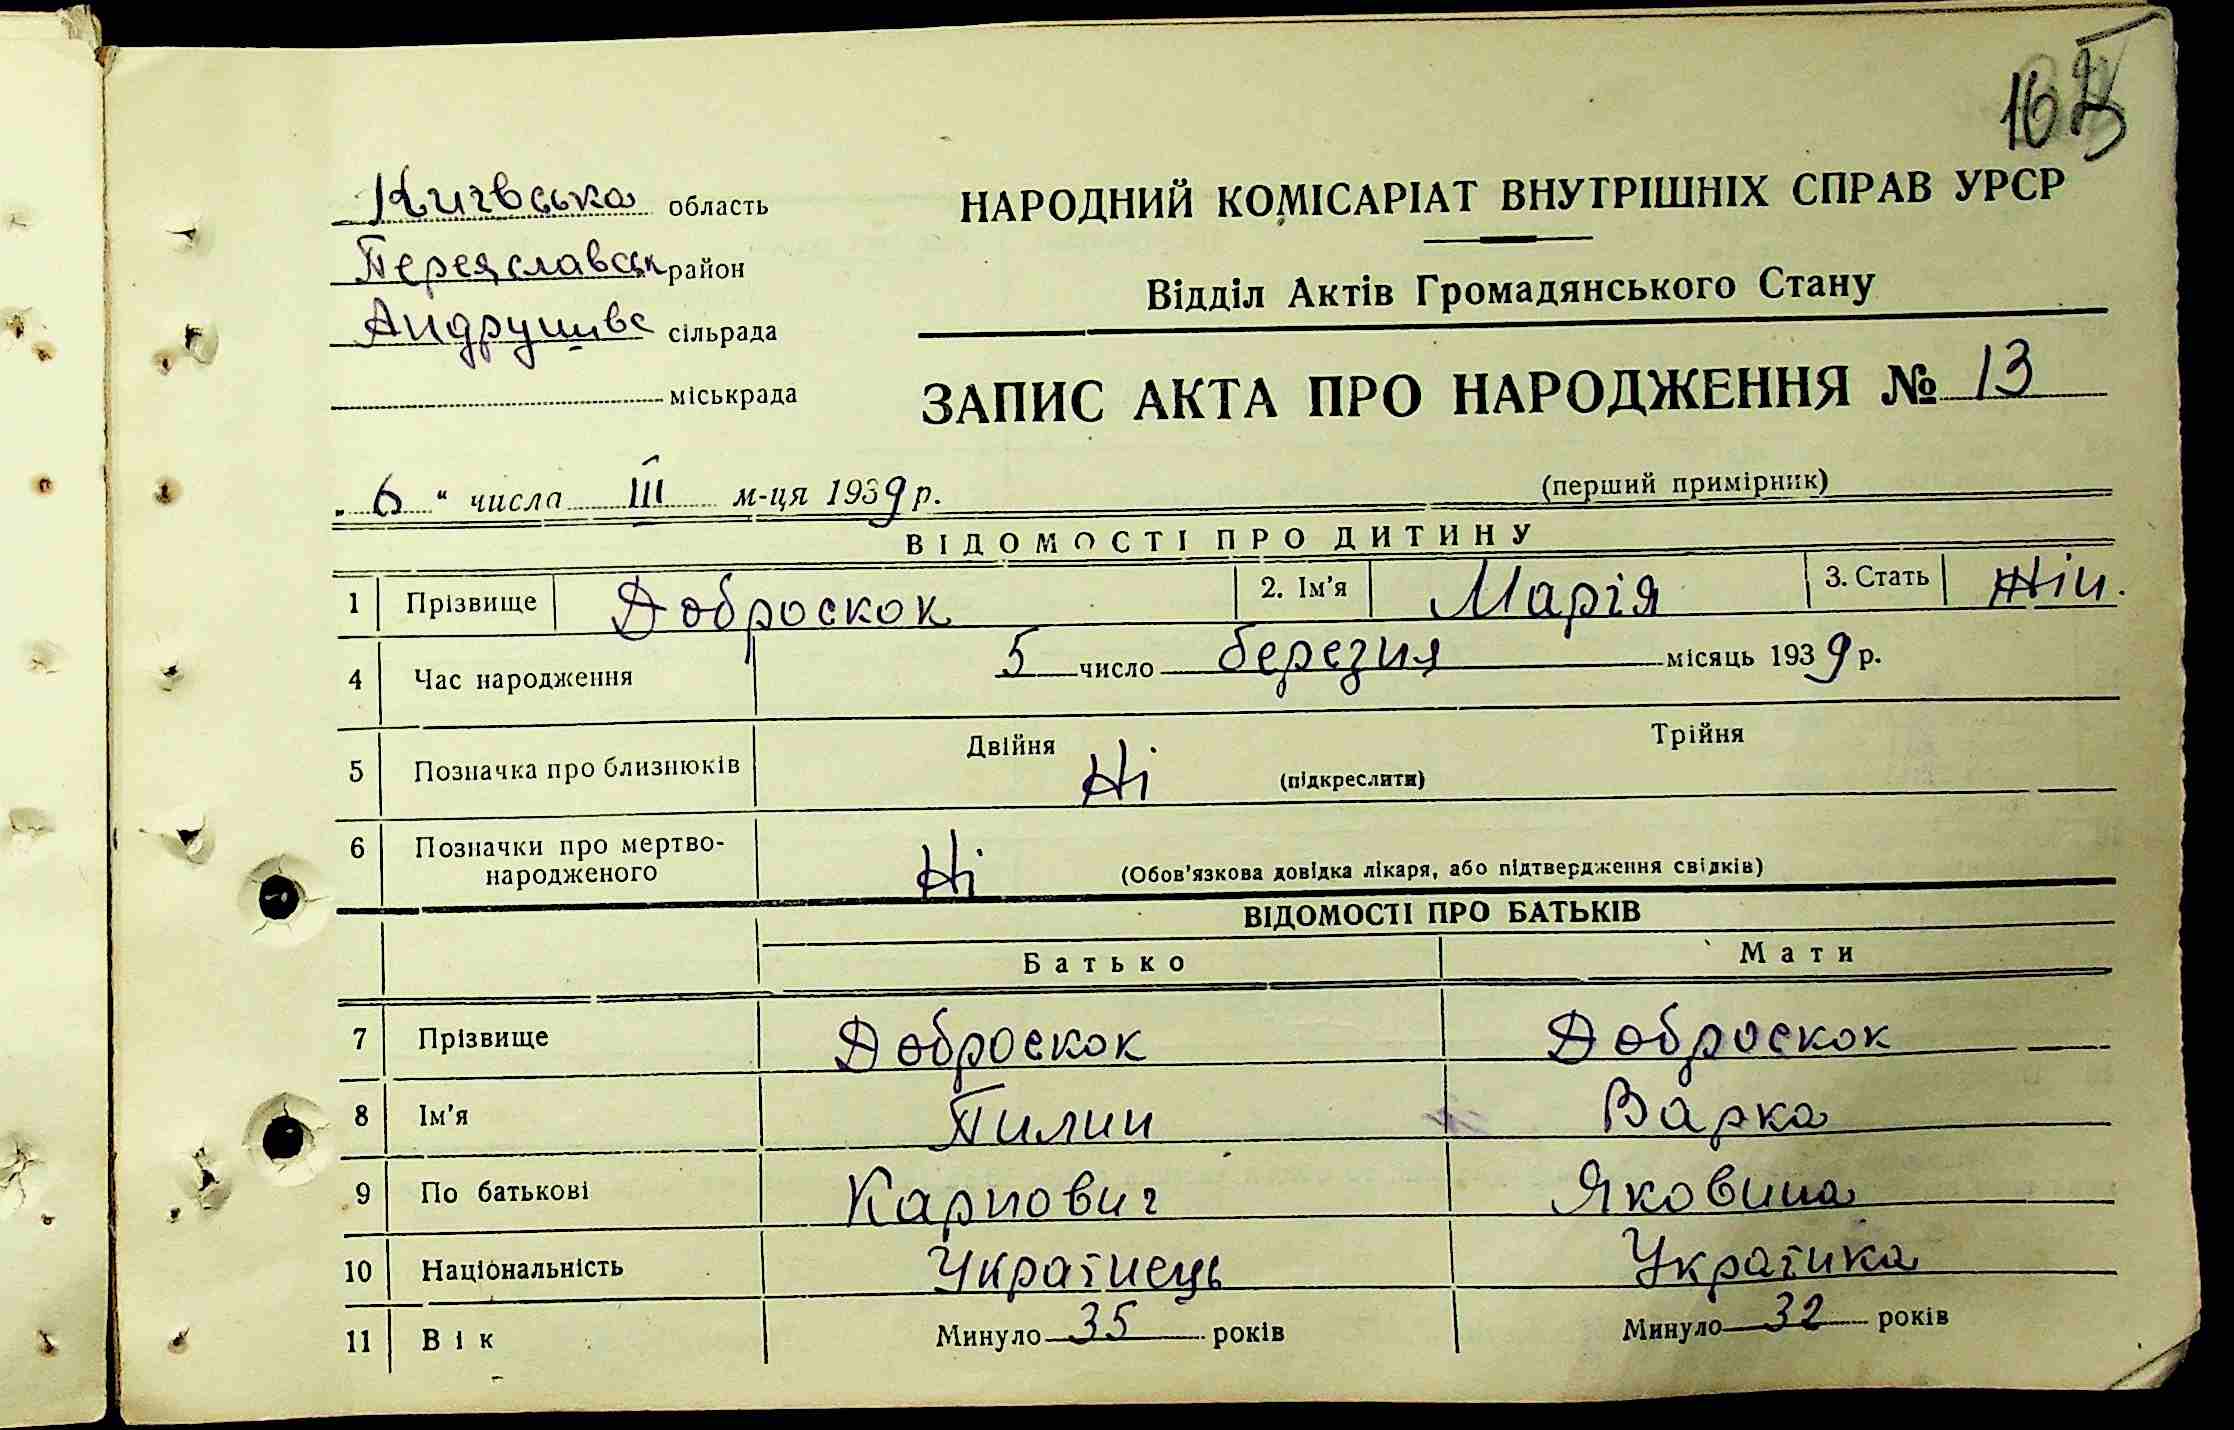 Київська область
Переяславськ район
Андрушівс сільрада
міськрада
НАРОДНИЙ КОМІСАРІАТ ВНУТРІШНІХ СПРАВ УРСР
Відділ Актів Громадянського Стану
ЗАПИС АКТА ПРО НАРОДЖЕННЯ № 13
„ 6 “ числа III м-ця 1939 р.
(перший примірник)
ВІДОМОСТІ ПРО ДИТИНУ
1 Прізвище Доброскок 2. Ім'я Марія 3. Стать Жін.
4 Час народження 5 число березня місяць 1939 р.
5 Позначка про близнюків Двійня Ні (підкреслити) Трійня
6 Позначки про мертво-
народженого Ні (Обов'язкова довідка лікаря, або підтвердження свідків)
ВІДОМОСТІ ПРО БАТЬКІВ
Батько Мати
7 Прізвище Доброскок Доброскок
8 Ім'я Пилип Варка
9 По батькові Карпович Яковина
10 Національність Українець Українка
11 Вік Минуло 35 років Минуло 32 років